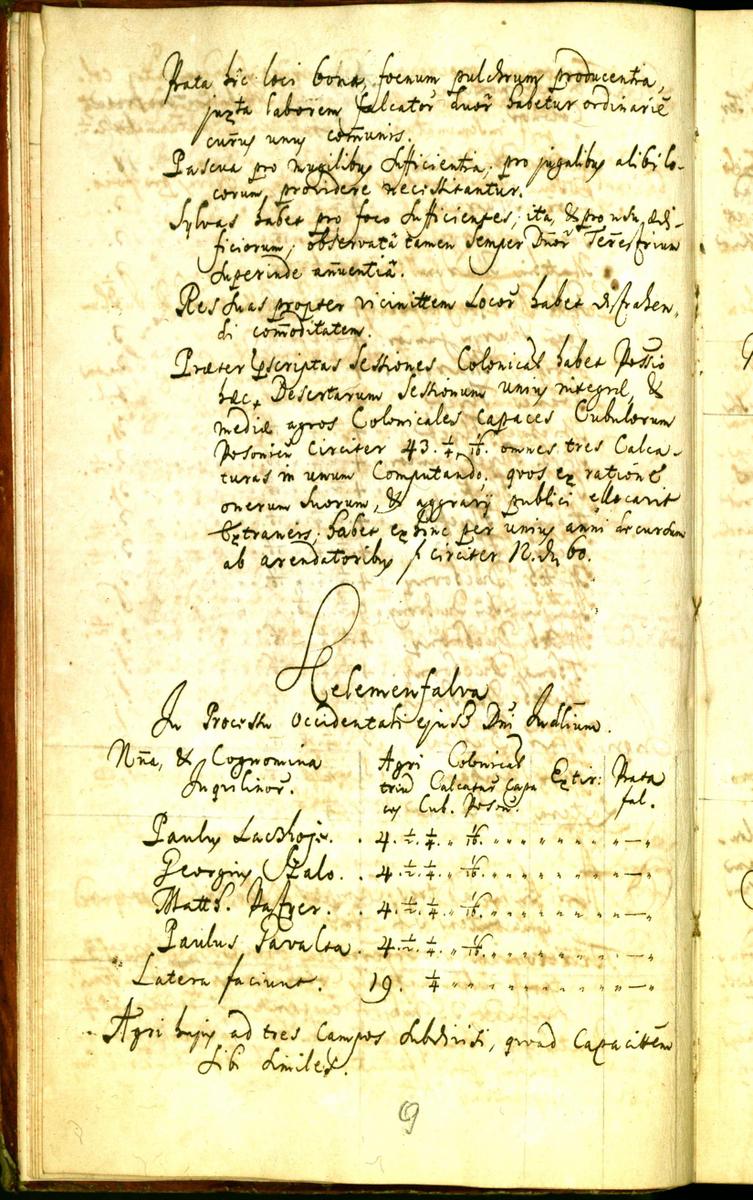 Prata hîc loci bona, foenum pulchrum producentia,
juxta laborem falcator̃ duor̃ habetur ordinariè
currus unus com̃unis.
Pascua pro mugilibus sufficientia, pro jugalibus alibi lo-
corum, providere necessitantur.
Sylvas habet pro foco sufficientes, ita, & pro usu, ædi-
ficiorum, observatâ tamen semper Dnor̃ Terrestrium
superinde an̄uentiâ.
Res suas propter vicinittem Locor̃ habet distrahen-
di com̃oditatem.
Præter præscriptas Sessiones Colonicales habet Possio
hæc, Desertarum Sessionum unius integræ, &
mediæ agros Colonicales capaces Cubulorum
Posonien̄ Circiter 43. 1/4. 1/16. omnes tres Calca-
turas in unum Computando, quos ex ratione
onerum suorum, & aggravij publici elocavit
Extraneis, habet exhinc per unius anni decursum
ab arendatoribus f circiter N. 60.
Kelemenfalva
In Processu Occidentali ejusd Dni
Nña, & Cognomina
Inquilinor̃.
Agri Colonical
trium Calcatur̃ Capa
ces Cub. Poson̄.
Extir:
Prata
fal.
Paulus . 4. 1/2. 1/4. „ 1/16. „ „ „ „ „ „ „ „ — „
Georgius Szalo. . 4. 1/2. 1/4. „ 1/16. „ „ „ „ „ „ „ „ — „
Matth. . 4. 1/2. 1/4. „ 1/16. „ „ „ „ „ „ „ „ — „
Paulus . 4. 1/2. 1/4. „ 1/16. „ „ „ „ „ „ „ „ — „
Latera faciunt. 19. 1/4 „ „ „ „ „ „ „ „ „ — „
Agri hujus ad tres Campos subdivisi, quoad Capacittem
sibi similes.